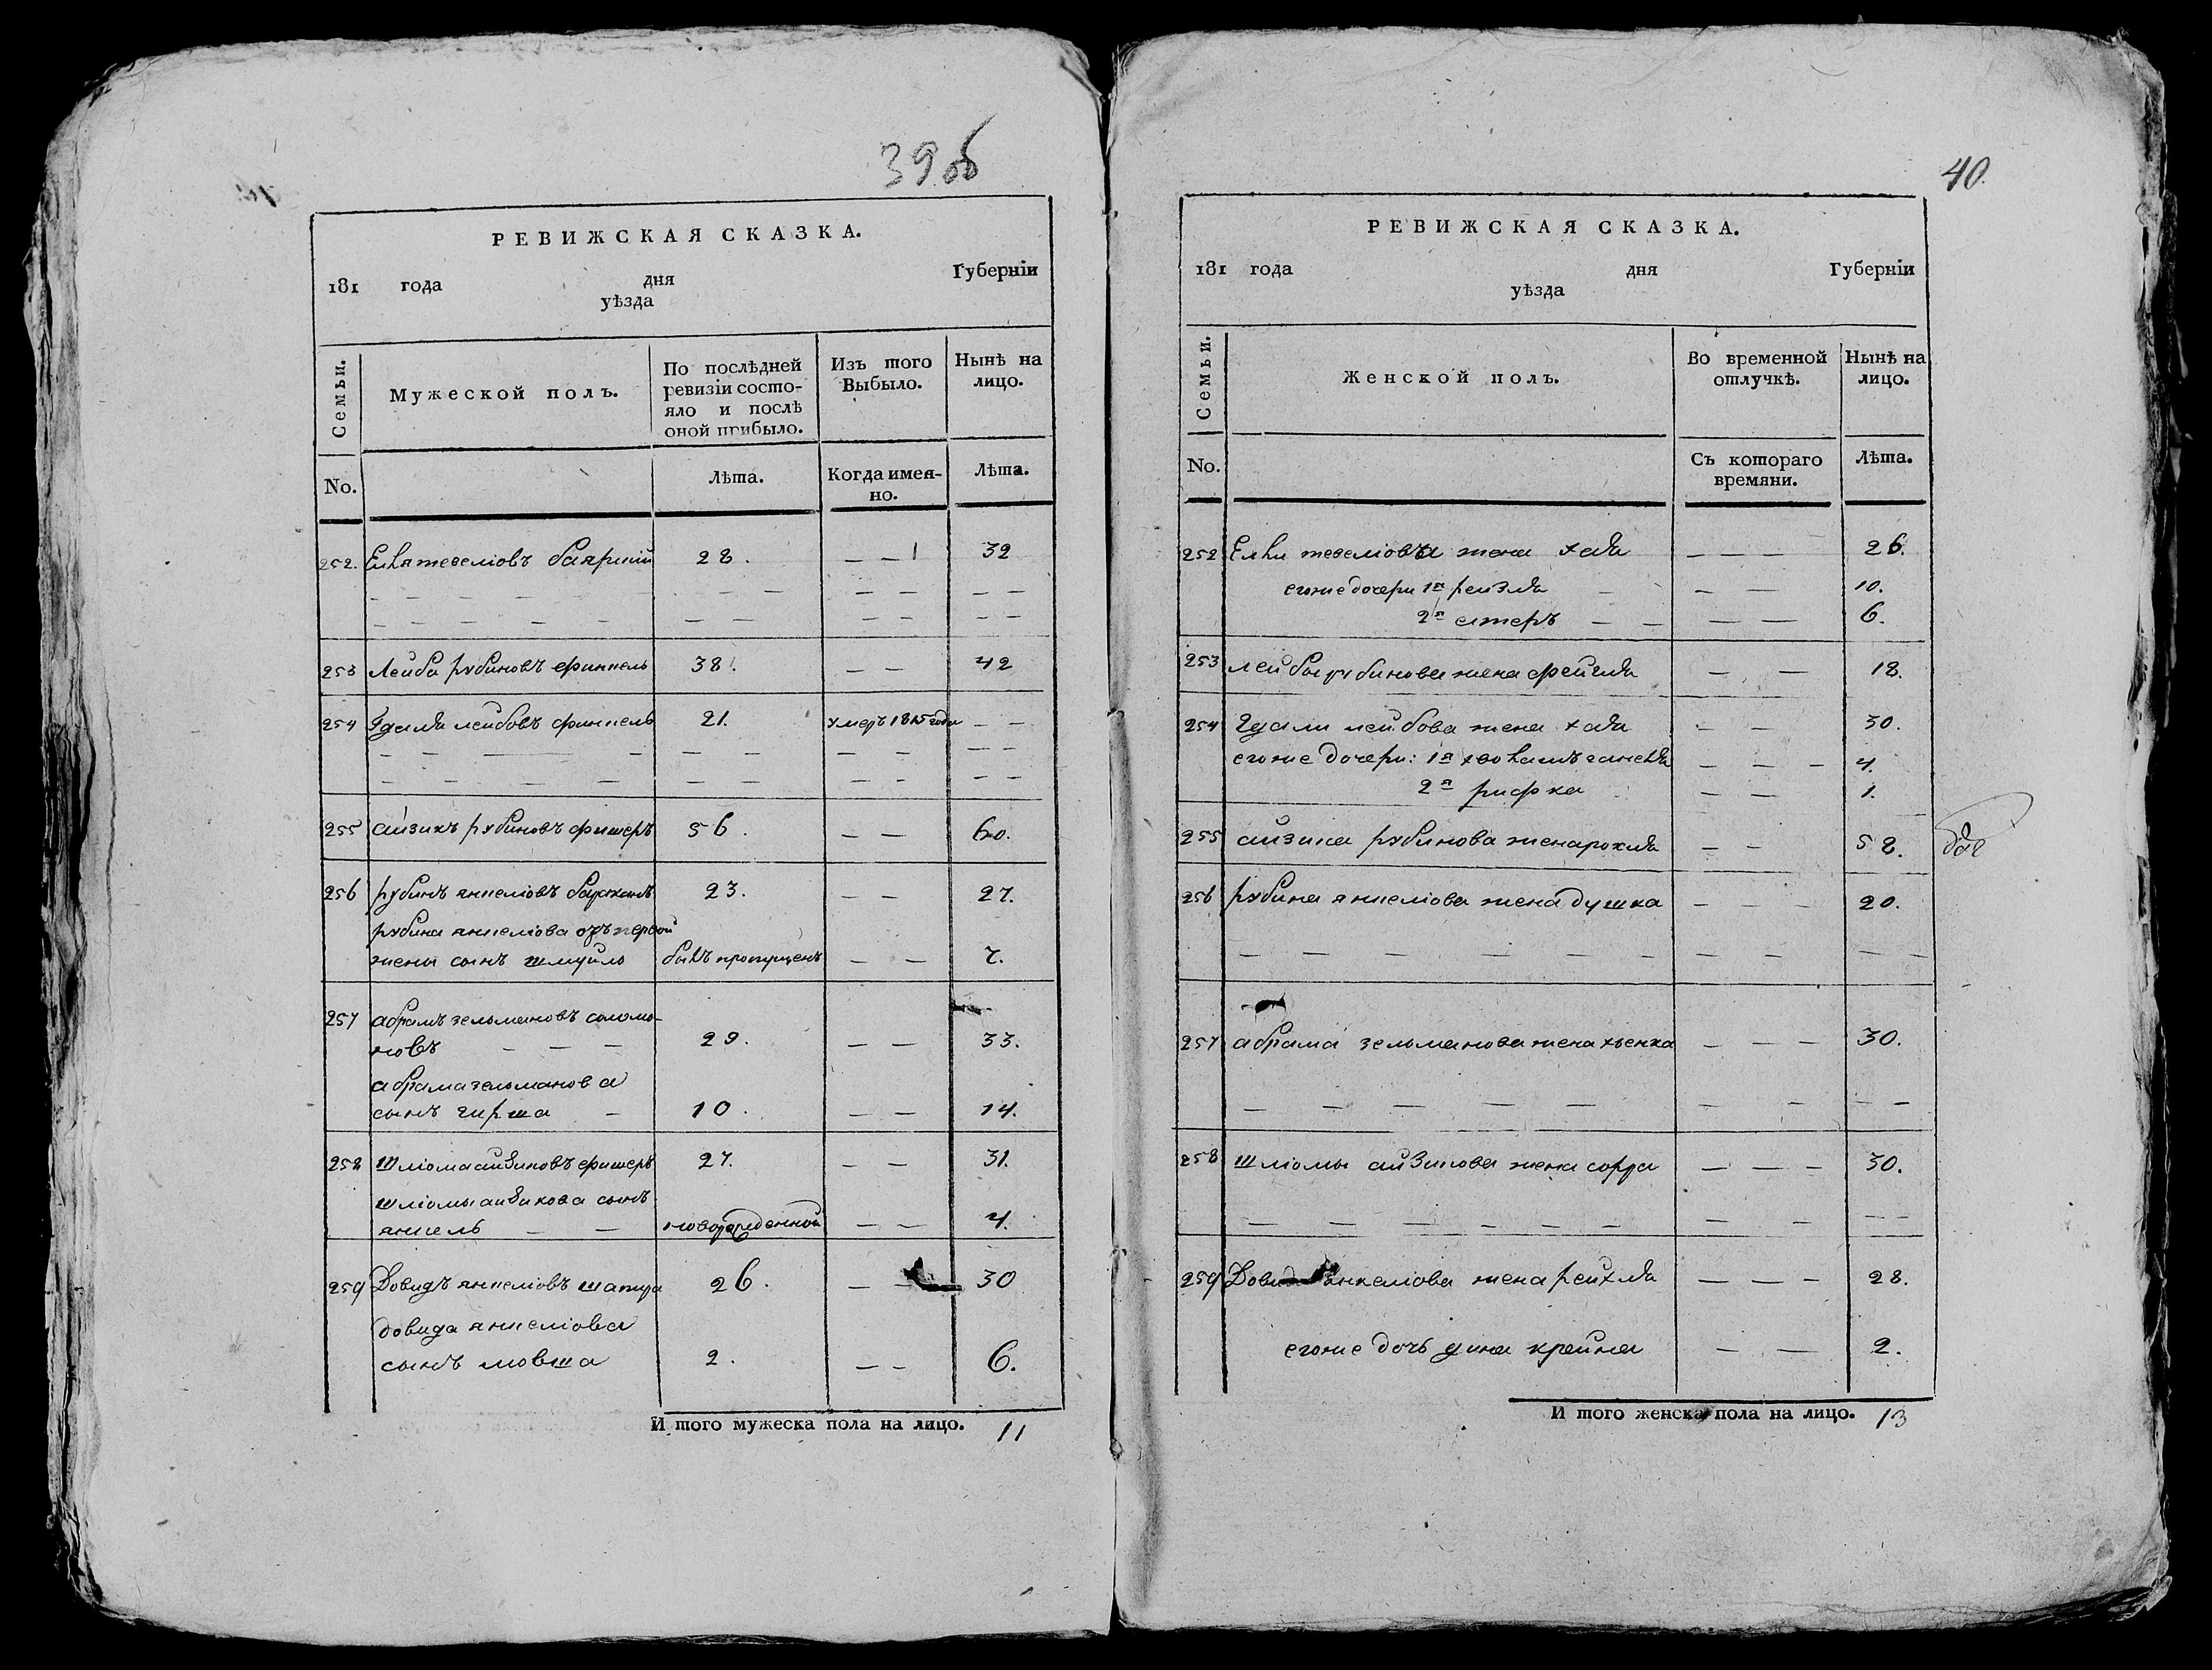 39об
РЕВИЖСКАЯ СКАЗКА.
181 года дня Губернїи
уѣзда
Семьи.
Мужеской полъ.
По послѣдней ревизїи состо-
яло и послѣ оной прибыло.
Изъ того Выбыло.
Нынѣ на лицо.
No.
Лѣта.
Когда имен-
но.
Лѣта.
252. Елья тевелїовъ 28. — — 32
253 Лейба рубиновъ финкель 38. — — 42
254 Гдаля лейбовъ финкель 21. умеръ 1815 года — —
255 айзикъ рубиновъ фишеръ 56. — — 60.
256 рубинъ янкелїовъ 23. — — 27.
рубина янкелїова отъ первой
жены сынъ шмуйло былъ пропущенъ — — 7.
257 абрамъ зельмановъ соломо-
новъ — — — 29. — — 33.
абрама зельманова
сынъ гирша — 10. — — 14.
258 Шлїома айзиковъ фишеръ 27. — — 31.
шлїомы айзикова сынъ
янкель — — новорожденной — — 4.
259 Довидъ янкелїовъ шапира 26. — — 30
довида янкелїова
сынъ мовша 2. — — 6.
И того мужеска пола на лицо. 11
40.
РЕВИЖСКАЯ СКАЗКА.
181 года дня Губернїи
уѣзда
Семьи.
Женской полъ.
Во временной отлучкѣ.
Нынѣ на лицо.
No.
Съ котораго времяни.
Лѣта.
252 Ельи тевелїова жена хая — — — 26.
егоже дочери 1я рейзля — — — 10.
2я естеръ — — — — 6.
253 лейбы рубинова жена фейгля — — 18.
254 Гдали лейбова жена хая — — 30.
егоже дочери: 1я — — — 4.
2я рифка — — 1.
255 айзика рубинова жена рохля — — 58.
256 рубина янкелїова жена душка — — — 20.
257 абрама зельманова жена хьенка — — — 30.
258 шлїомы айзикова жена сорра — — — 30.
259 Довида янкелїова жена рейхля — — — 28.
егоже дочь дина крейна — — 2.
И того женска пола на лицо. 13